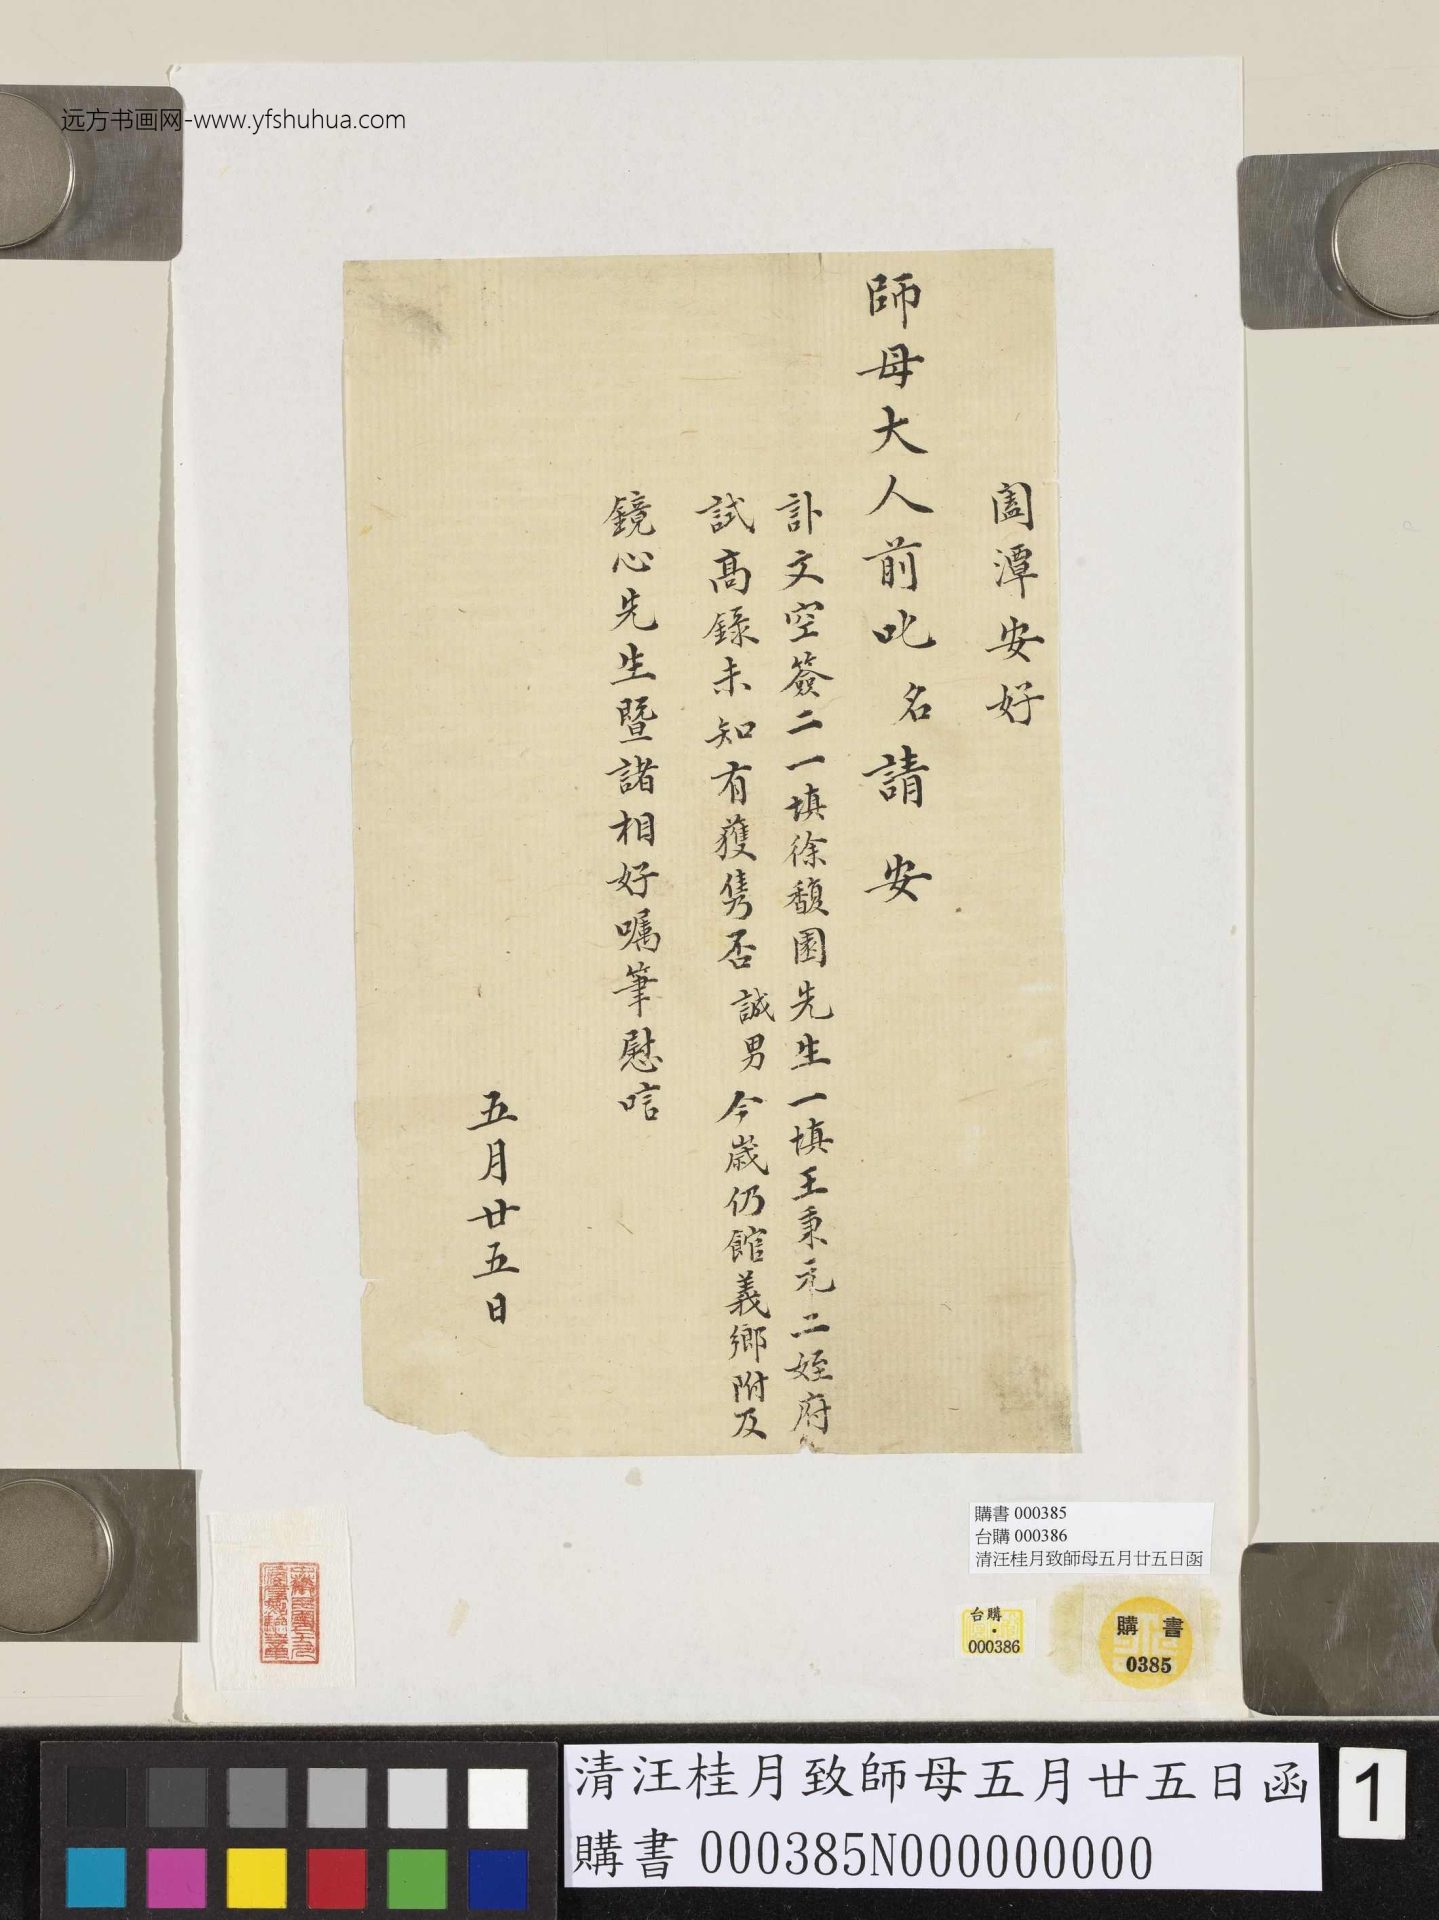 远方书画网-www.yfshuhua.com
闔潭安好
師母大人前叱名請安
訃文空簽二一填徐馥園先生一填王秉元二姪府
試高錄未知有獲雋否誠男今歲仍館義鄉附及
鏡心先生暨諸相好囑筆慰唁
五月廿五日
購書 000385
台購 000386
清汪桂月致師母五月廿五日函
台購
·
000386
購書
0385
清汪桂月致師母五月廿五日函
購書 000385N000000000
1